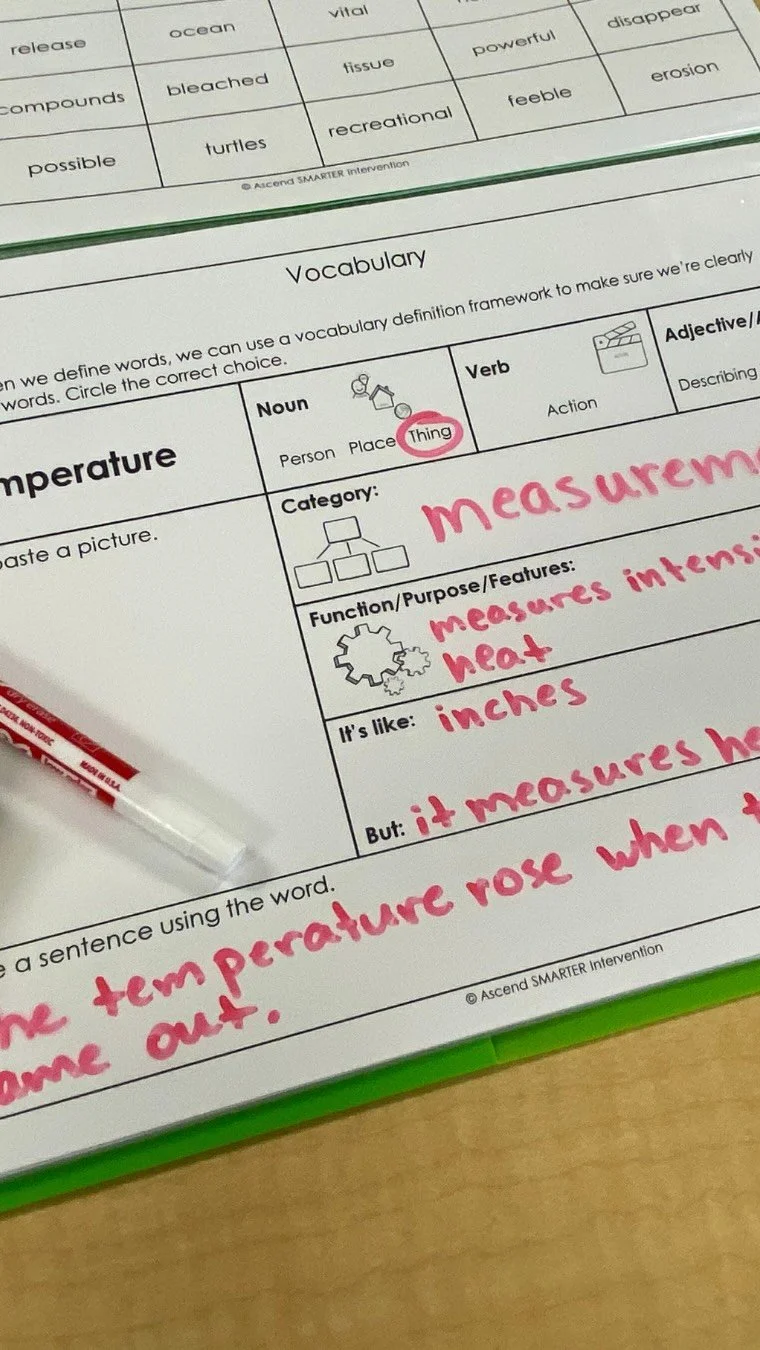 release ocean vital disappear
compounds bleached tissue powerful
possible turtles recreational feeble erosion
© Ascend SMARTER Intervention
Vocabulary
en we define words, we can use a vocabulary definition framework to make sure we're clearly
words. Circle the correct choice.
mperature
Noun
Person Place Thing
Verb
Action
Adjective/A
Describing
aste a picture.
Category: measureme
Function/Purpose/Features: measures intensi
heat
It's like: inches
But: it measures he
e a sentence using the word.
he temperature rose when t
ame out.
© Ascend SMARTER Intervention
dry erase
NON-TOXIC
MADE IN U.S.A.